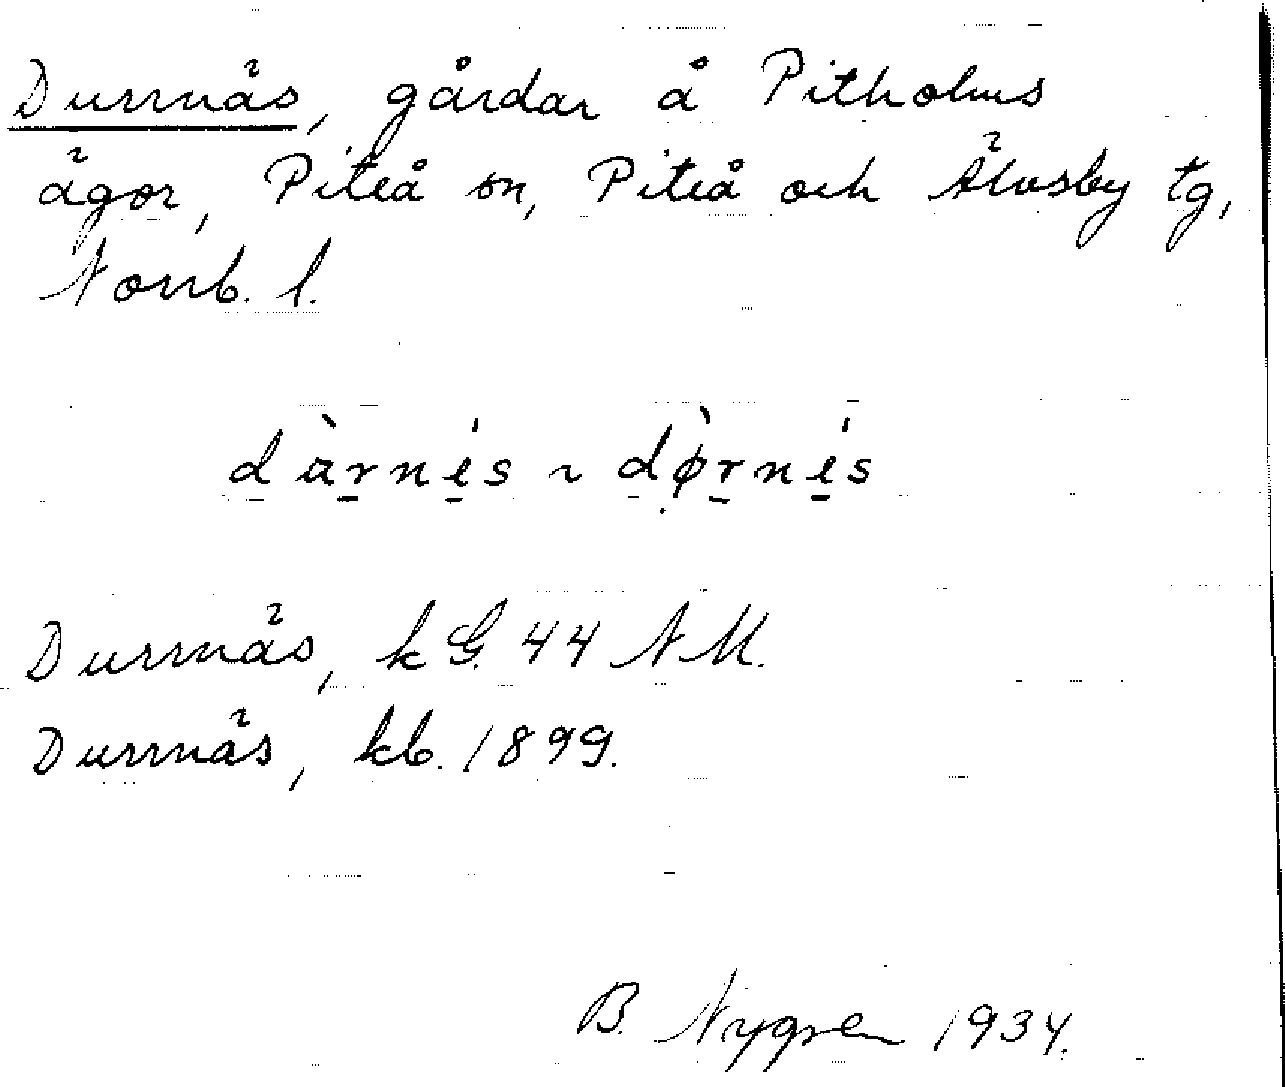 Durrnäs, gårdar å Pitholms
ägor, Piteå sn, Piteå och Älvsby tg,
Norrb. l.
dàrnés ~ dø̀rnés
Durrnäs, kG. 44 NM.
Durrnäs, kb. 1899.
B. Nygren 1934.